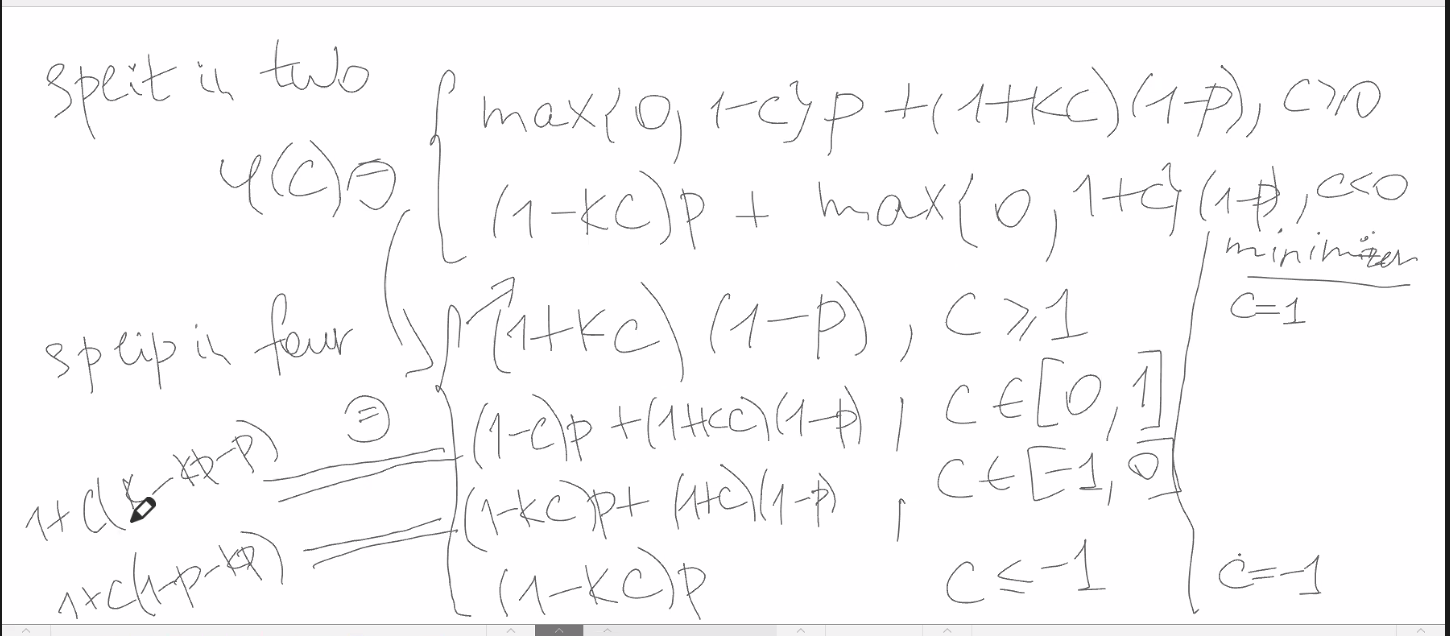 split in two
φ(c) = { max{0, 1-c}p + (1+kc)(1-p), c⩾0
(1-kc)p + max{0, 1+c}(1-p), c<0
minimizer
splip in four
(1+kc)(1-p), c⩾1
c=1
= (1-c)p + (1+kc)(1-p), c∈[0,1]
1+c(k-kp-p)
(1-kc)p + (1+c)(1-p), c∈[-1,0]
1+c(1-p-kp)
(1-kc)p c≤-1
c=-1